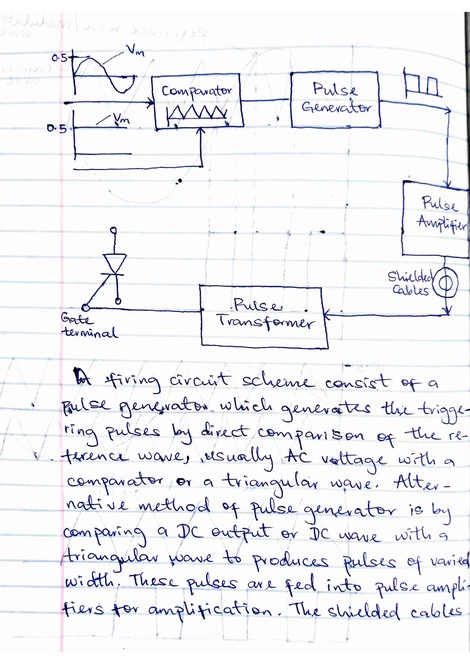 0.5
Vm
Comparator
Pulse
Generator
0.5
Vm
Pulse
Amplifier
Shielded
Cables
Pulse
Transformer
Gate
terminal
A firing circuit scheme consist of a
pulse generator which generates the trigge-
ring pulses by direct comparison of the re-
ference wave, usually AC voltage with a
comparator or a triangular wave. Alter-
native method of pulse generator is by
comparing a DC output or DC wave with a
triangular wave to produces pulses of varied
width. These pulses are fed into pulse ampli-
fiers for amplification. The shielded cables